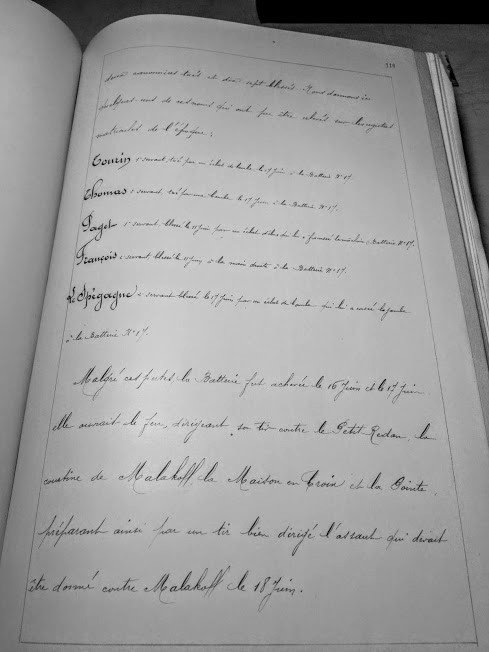 119
deux canonniers tués et dix sept blessés. Nous donnons ici
quelques uns de ces noms qui ont pu être relevés sur les registres
matricules de l'époque:
Tourin 1er servant, tué par un éclat de bombe le 17 Juin à la Batterie No 17.
Thomas: servant, tué par une bombe le 17 Juin à la Batterie No 17.
Paget 1er servant blessé le 17 Juin par un éclat d'obus Batterie No 17.
François: servant blessé le 17 Juin à la main droite à la Batterie No 17.
Le Spégagne: servant blessé le 17 Juin par un éclat de bombe qui lui a cassé la jambe
à la Batterie No 17.
Malgré ces pertes, la Batterie fut achevée le 16 Juin et le 17 Juin
elle ouvrait le feu, dirigeant son tir contre le Petit Redan, la
courtine de Malakoff la Maison en Croix et la Pointe,
préparant ainsi par un tir bien dirigé l'assaut qui devait
être donné contre Malakoff le 18 Juin.